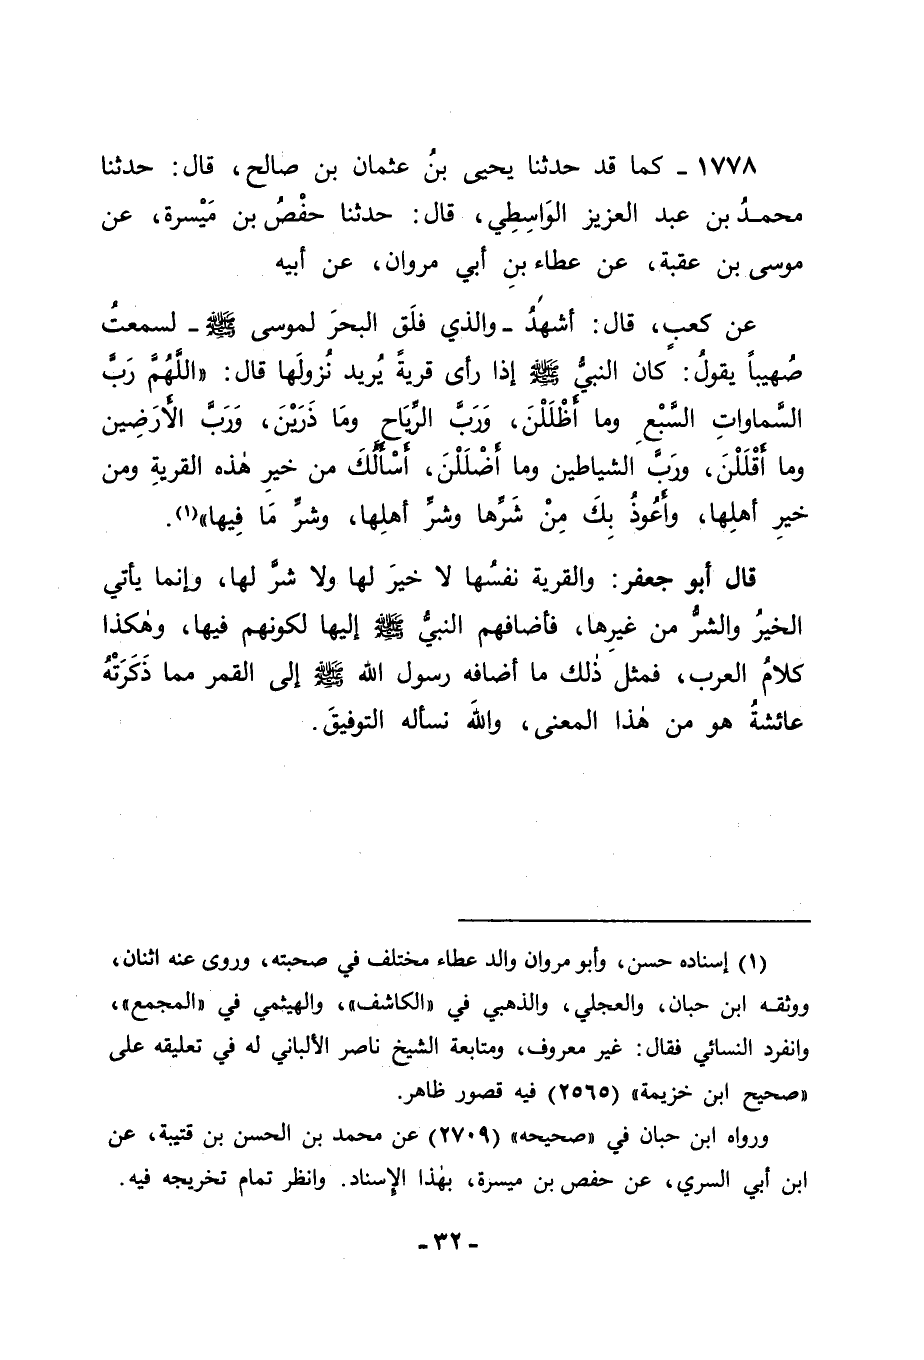 ١٧٧٨ ـ كما قد حدثنا يحيى بنُ عثمان بن صالح، قال: حدثنا
محمدُ بن عبد العزيز الوَاسِطِي، قال: حدثنا حفْصُ بن مَيْسرة، عن
موسى بن عقبة، عن عطاء بنِ أبي مروان، عن أبيه
عن كعبٍ، قال: أشهدُ ـ والذي فلَق البحرَ لموسى ﷺ ـ لسمعتُ
صُهيباً يقولُ: كان النبيُّ ﷺ إذا رأى قريةً يُريد نُزولَها قال: «اللَّهُمَّ رَبَّ
السَّماواتِ السَّبْعِ وما أَظْلَلْنَ، وَرَبَّ الرِّيَاحِ ومَا ذَرَيْنَ، وَرَبَّ الأَرَضِين
وما أَقْلَلْنَ، ورَبَّ الشياطين وما أَضْلَلْنَ، أَسْأَلُكَ من خيرِ هٰذه القريةِ ومن
خيرِ أهلِها، وأَعُوذُ بِكَ مِنْ شَرِّها وشرِّ أهلِها، وشرِّ مَا فِيها»(١).
قال أبو جعفر: والقرية نفسُها لا خيرَ لها ولا شرَّ لها، وإنما يأتي
الخيرُ والشرُّ من غيرِها، فأضافهم النبيُّ ﷺ إليها لكونهم فيها، وهٰكذا
كلامُ العرب، فمثل ذٰلك ما أضافه رسول الله ﷺ إلى القمر مما ذَكَرَتْهُ
عائشةُ هو من هٰذا المعنى، واللهَ نسأله التوفيقَ.
(١) إسناده حسن، وأبو مروان والد عطاء مختلف في صحبته، وروى عنه اثنان،
ووثقه ابن حبان، والعجلي، والذهبي في «الكاشف»، والهيثمي في «المجمع»،
وانفرد النسائي فقال: غير معروف، ومتابعة الشيخ ناصر الألباني له في تعليقه على
«صحيح ابن خزيمة» (٢٥٦٥) فيه قصور ظاهر.
ورواه ابن حبان في «صحيحه» (٢٧٠٩) عن محمد بن الحسن بن قتيبة، عن
ابن أبي السري، عن حفص بن ميسرة، بهٰذا الإسناد. وانظر تمام تخريجه فيه.
ـ ٣٢ ـ